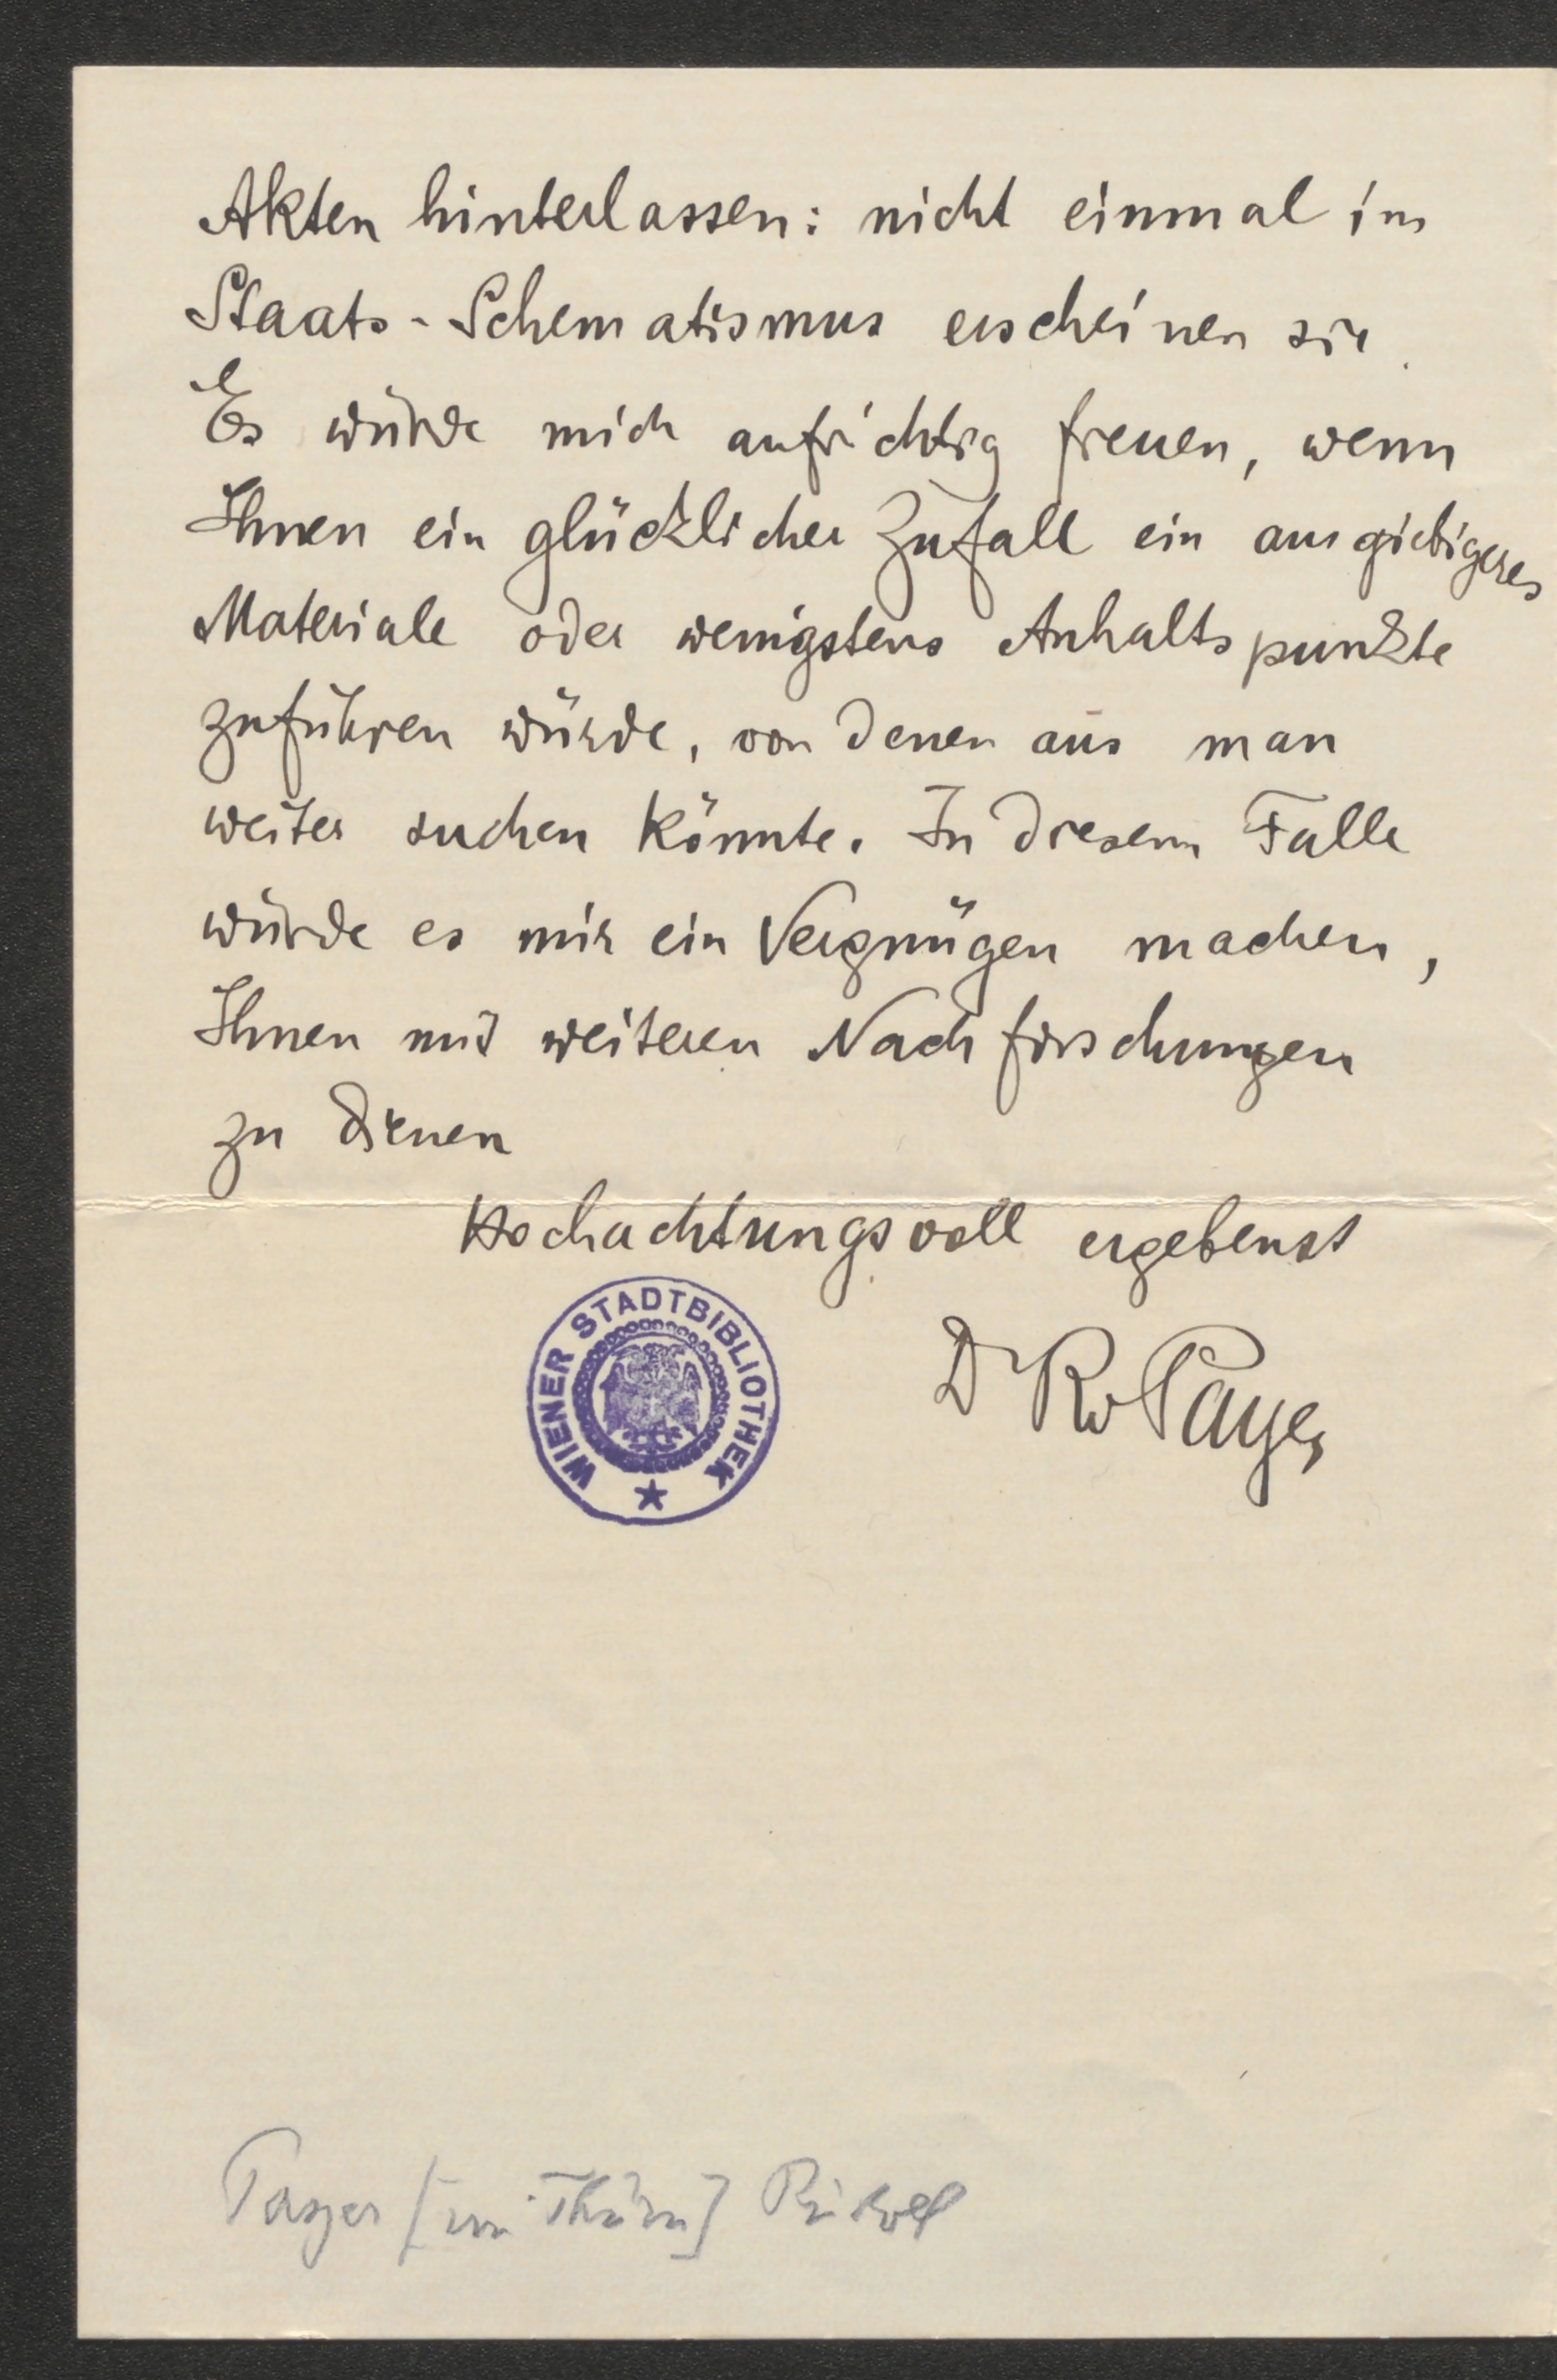 Akten hinterlassen: nicht einmal im
Staats-Schematismus erscheinen sie.
Es würde mich aufrichtig freuen, wenn
Ihnen ein glücklicher Zufall ein ausgiebigeres
Materiale oder wenigstens Anhaltspunkte
zuführen würde, von denen aus man
weiter suchen könnte. In diesem Falle
würde es mir ein Vergnügen machen,
Ihnen mit weiteren Nachforschungen
zu dienen
Hochachtungsvoll ergebenst
Dr Rv Payer
WIENER STADTBIBLIOTHEK
Payer [von Thurn] Rudolf